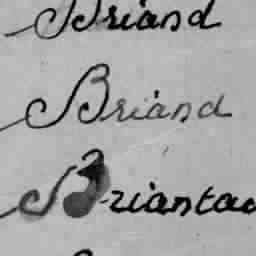 Briand
Briand
Briantais